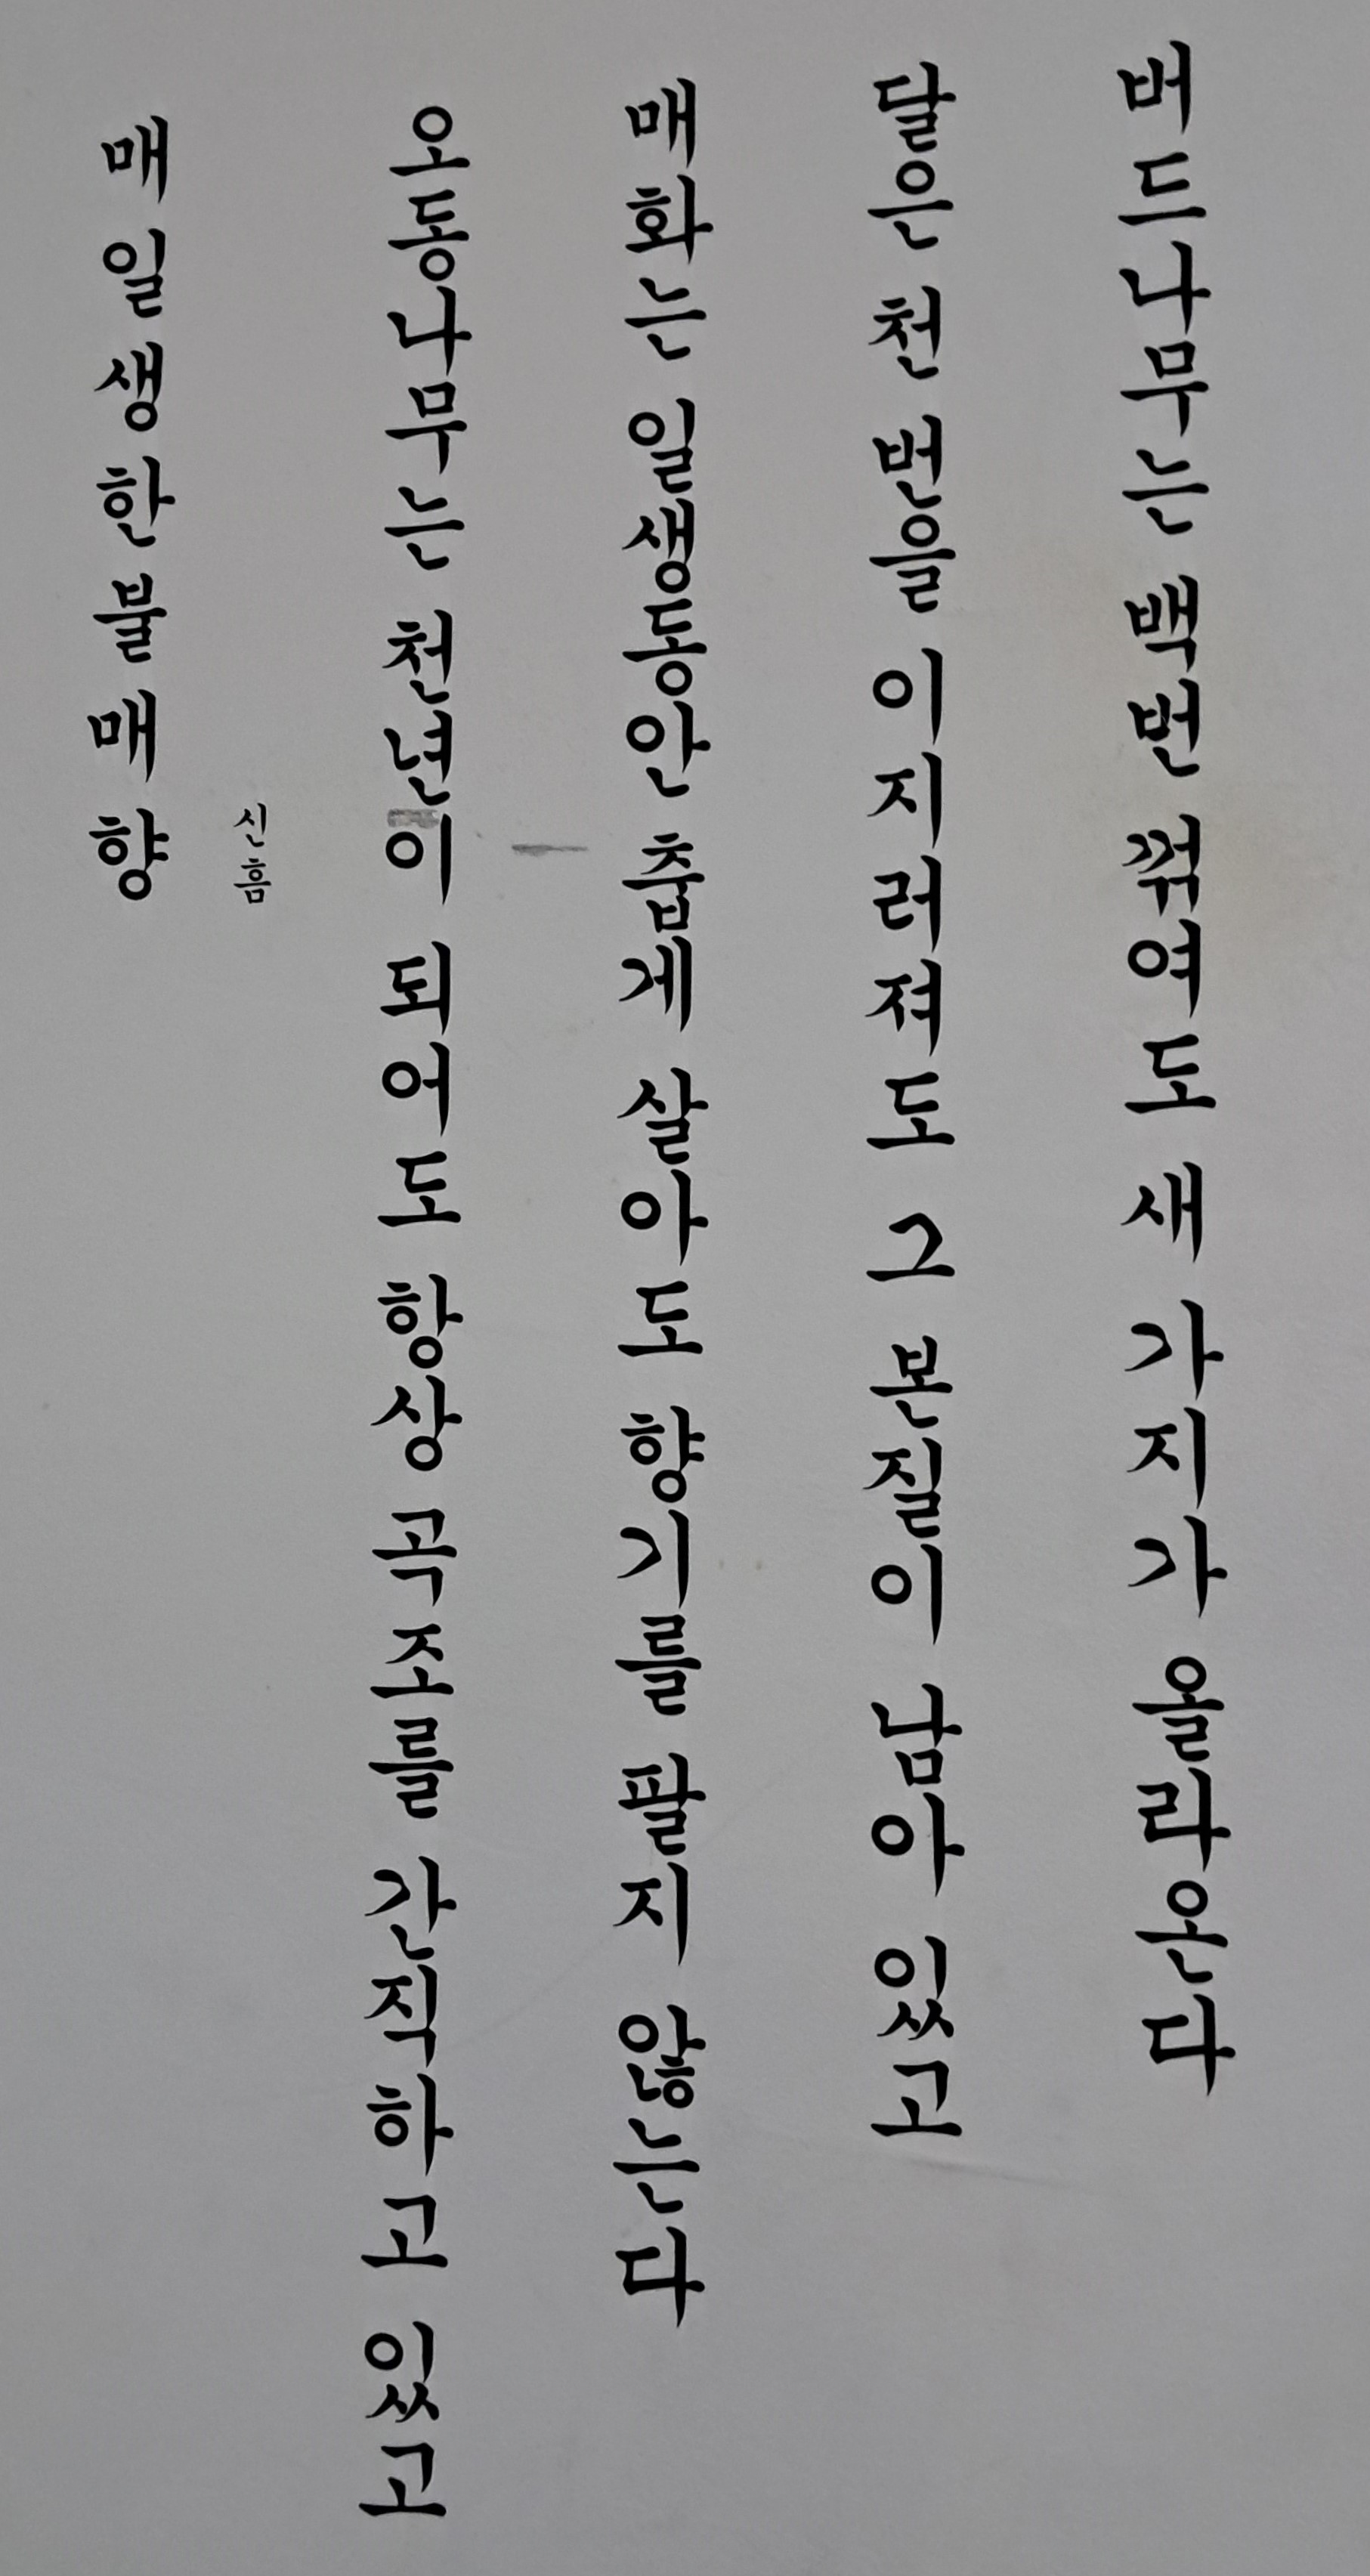 매일생한불매향
신흠
오동나무는 천년이 되어도 항상 곡조를 간직하고 있고
매화는 일생동안 춥게 살아도 향기를 팔지 않는다
달은 천 번을 이지러져도 그 본질이 남아 있고
버드나무는 백번 꺾여도 새 가지가 올라온다